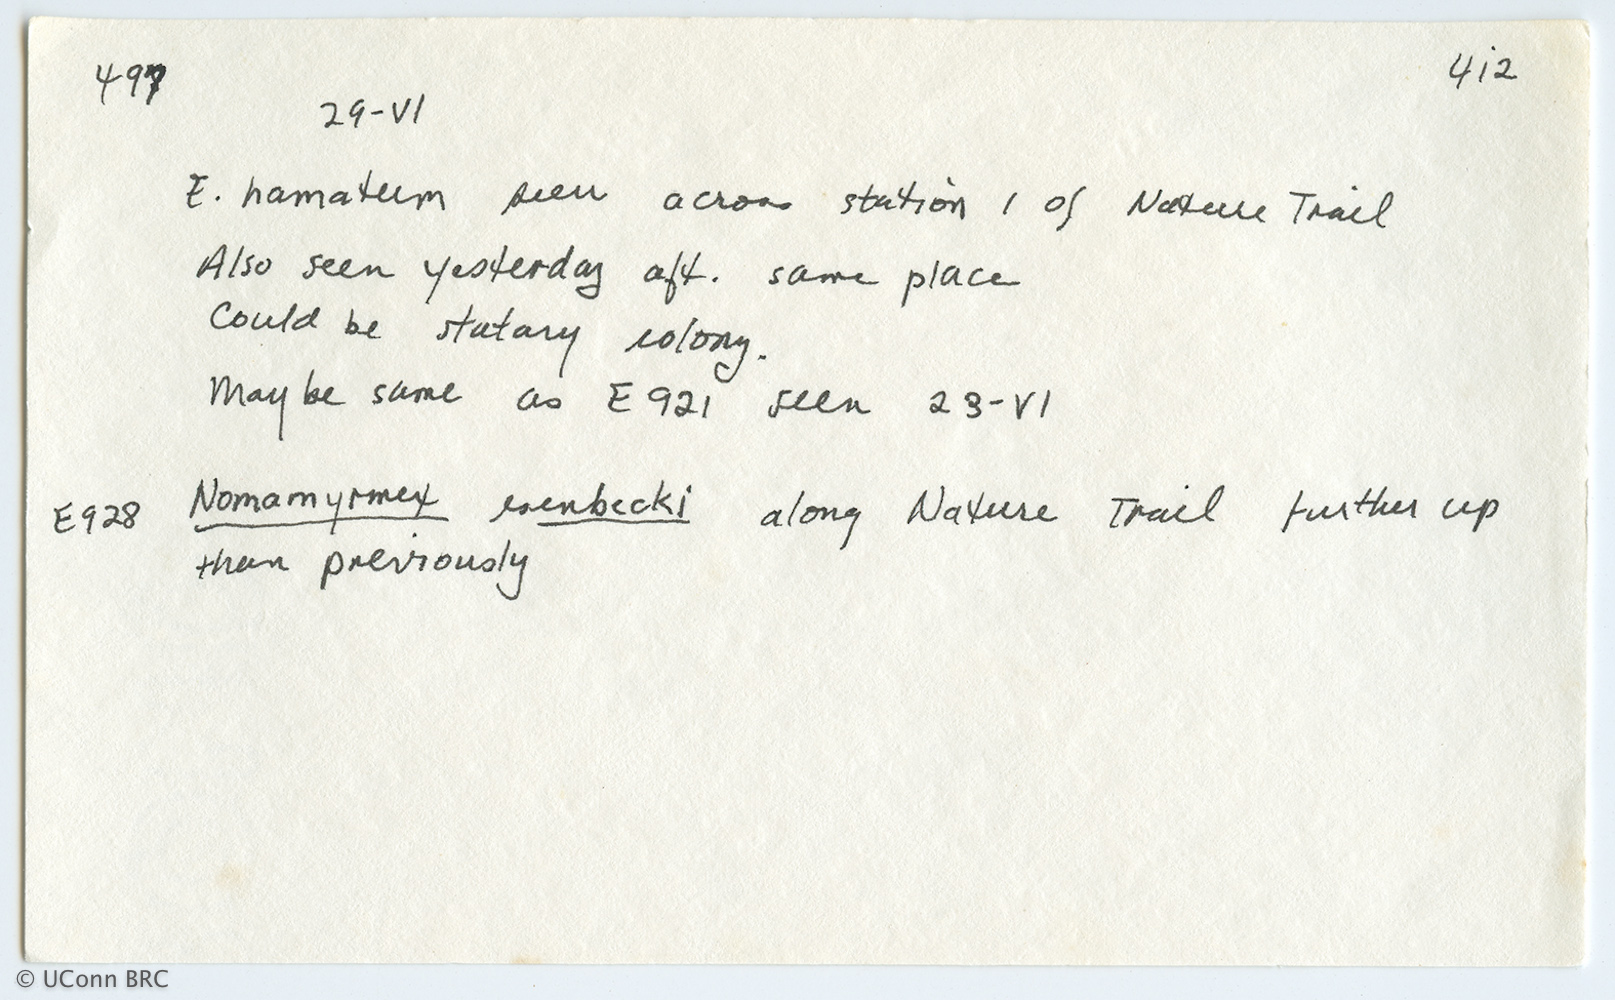 497 412
29-VI
E. hamatum seen across station 1 of Nature Trail
Also seen yesterday aft. same place
Could be statary colony.
Maybe same as E921 seen 23-VI
E928 Nomamyrmex esenbecki along Nature Trail further up
than previously
© UConn BRC